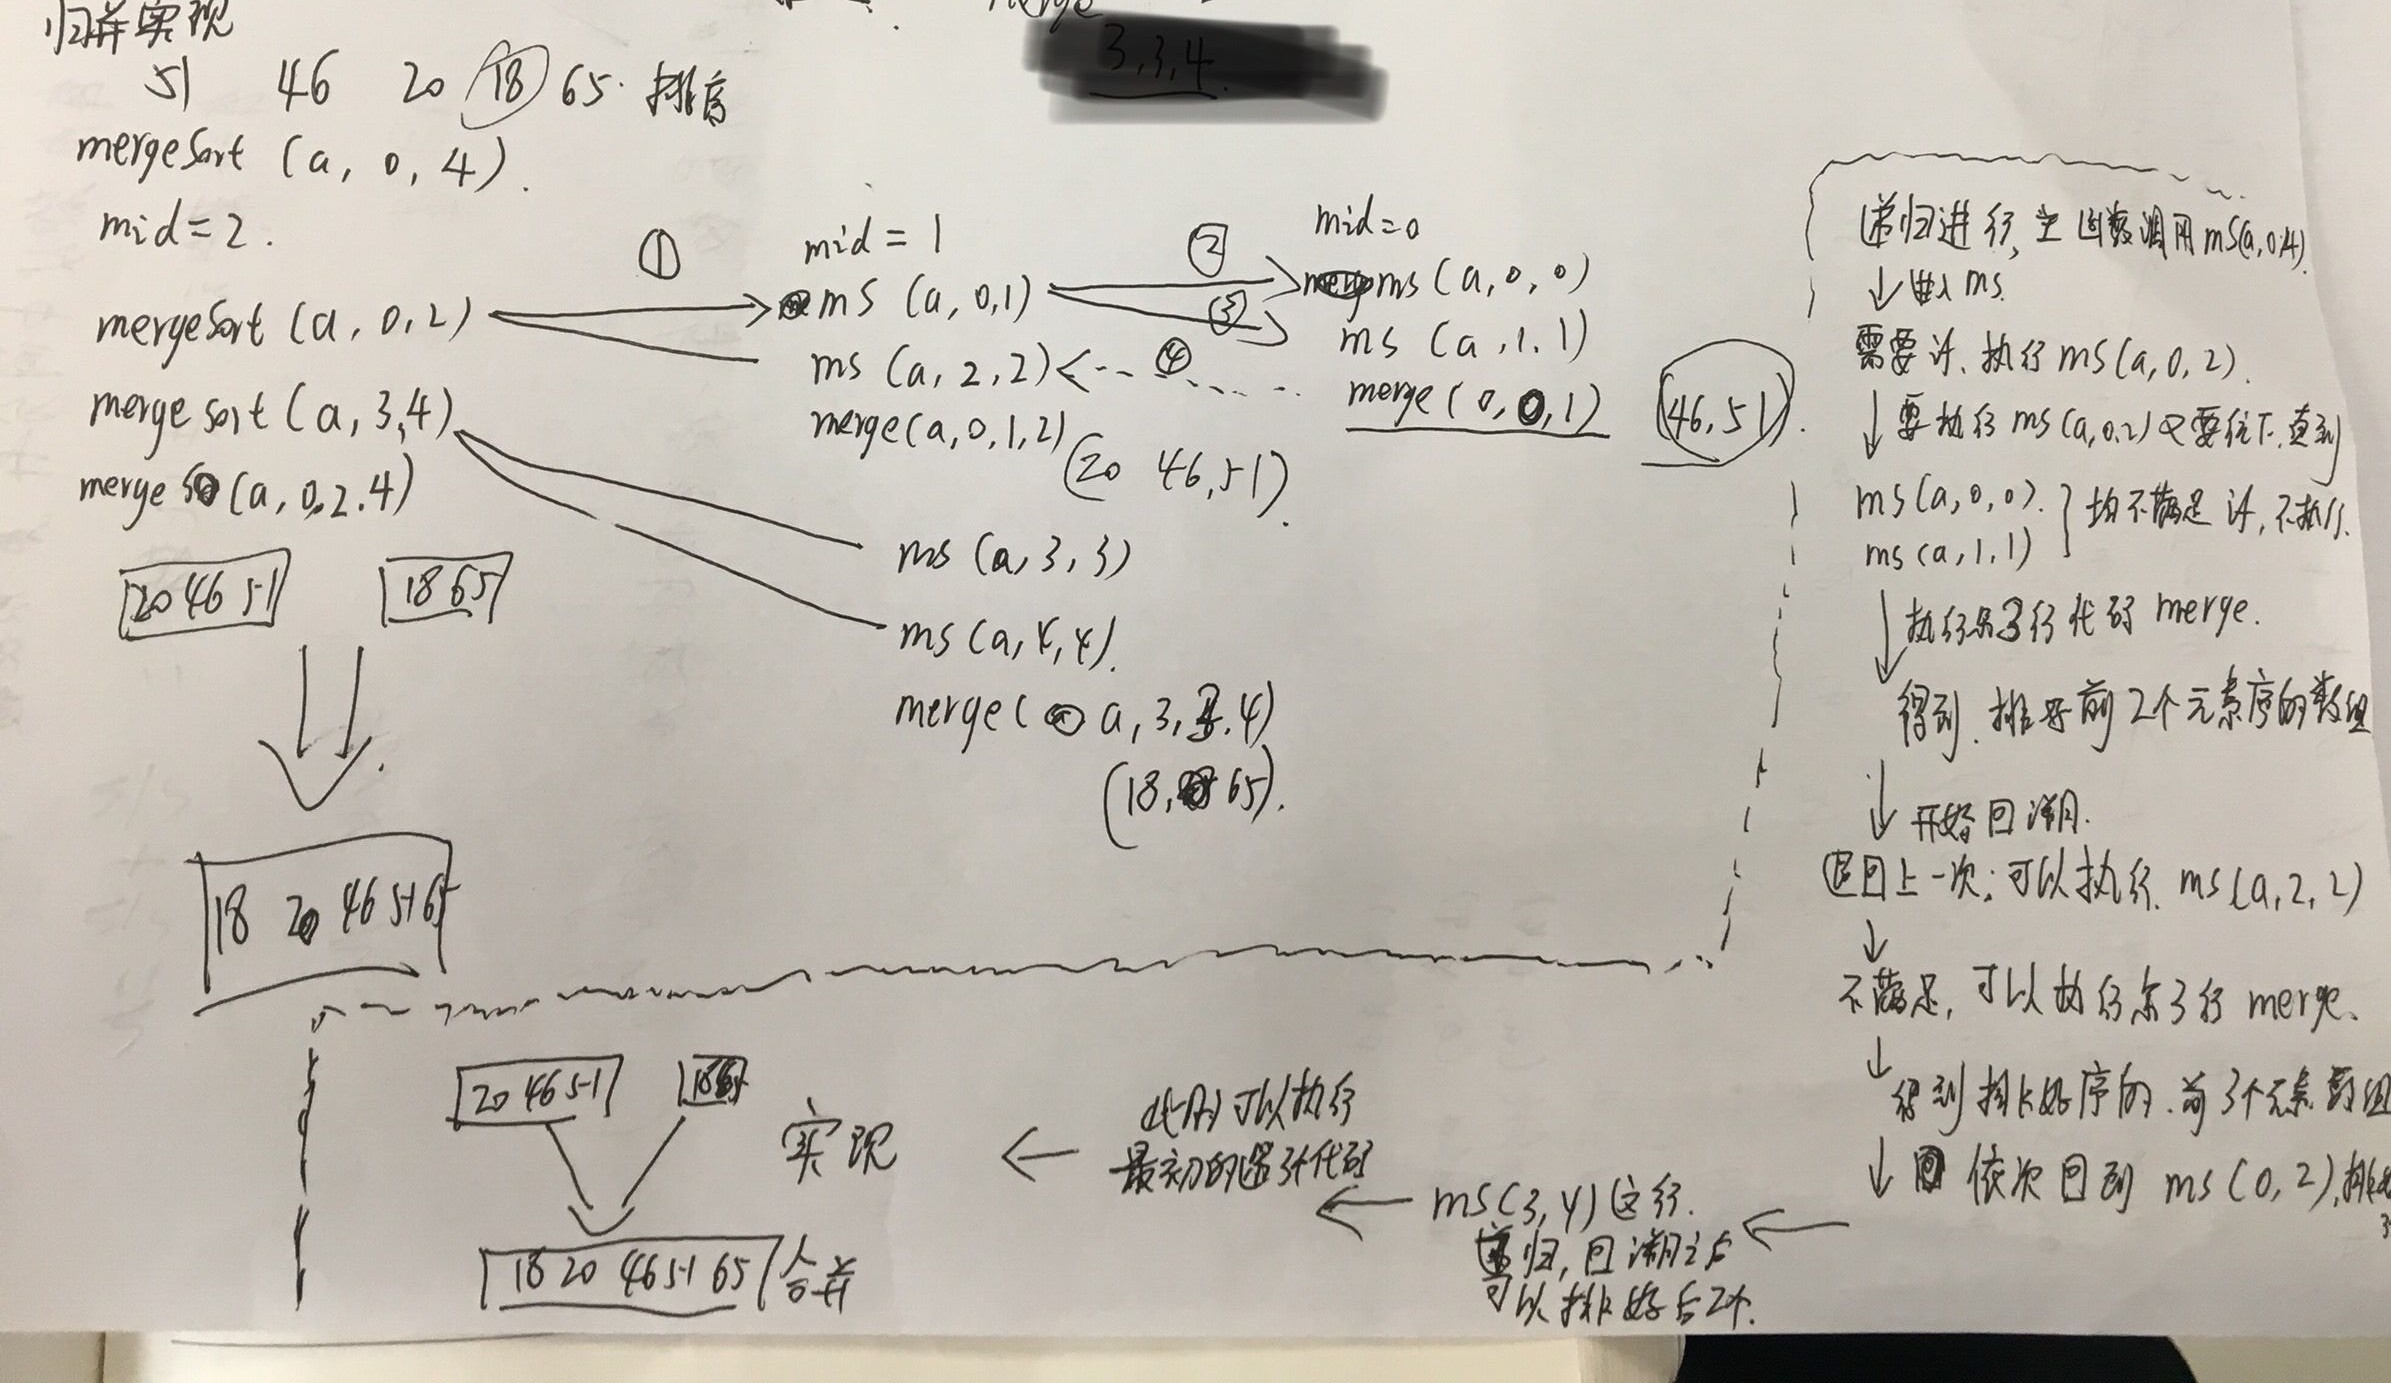 归并实现
51 46 20 18 65. 排序
3,3,4
mergeSort (a, 0, 4).
mid=2.
mergeSort (a, 0,2)
mergeSort (a, 3,4)
merge (a, 0,2,4)
20 46 51
18 65
18 20 46 51 65
①
mid = 1
ms (a, 0,1)
ms (a, 2,2)
merge(a,0,1,2)
(20 46,51).
②
③
④
mid=0
ms (a, 0, 0)
ms (a, 1, 1)
merge( 0, 0,1)
(46,51).
ms (a,3,3)
ms (a,4,4).
merge( a,3,3,4)
(18, 65).
递归进行,主函数调用ms(a,0,4).
↓ 进入ms.
需要if.执行ms(a,0,2).
↓ 要执行ms(a,0,2)又要往下.直到
ms(a,0,0).
ms(a,1,1)
均不满足if,不执行.
↓ 执行第3行代码merge.
得到.排好前2个元素序的数组
↓ 开始回溯.
退回上一次;可以执行.ms(a,2,2)
↓
不满足,可以执行第3行merge.
↓
得到排好序的.前3个元素数组
↓ 依次回到ms(0,2),
← ms(3,4)这行.
递归,回溯之后
可以排好后2个.
← 此时可以执行
最初的第3个代码
← 实现
20 46 51
18 65
18 20 46 51 65
合并